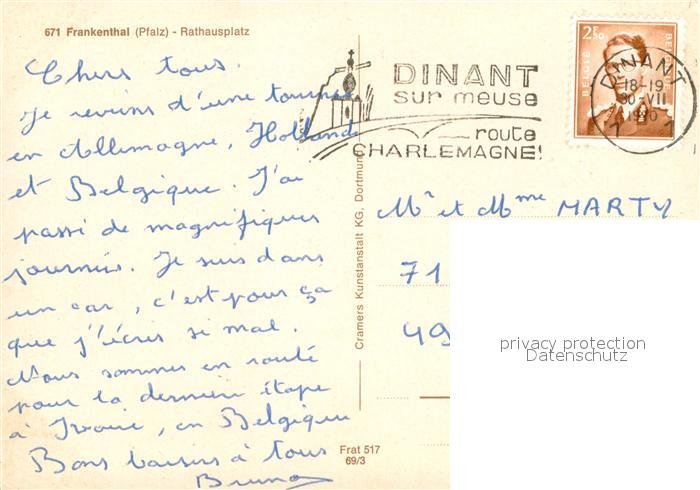 671 Frankenthal (Pfalz) - Rathausplatz
Chers tous.
Je reviens d'une tournée
en Allemagne, Hollande
et Belgique. J'ai
passé de magnifiques
journées. Je suis dans
un car, c'est pour ça
que j'écris si mal.
Nous sommes en route
pour la dernière étape
à Yvoir, en Belgique
Bons baisers à tous
Bruno
Frat 517
69/3
Cramers Kunstanstalt KG, Dortmund
DINANT
sur meuse
route
CHARLEMAGNE!
2F50
BELGIE
BELGIQUE
DINANT
18-19
30-VII
1970
1 1
Mr et Mme MARTY
71
49
privacy protection
Datenschutz